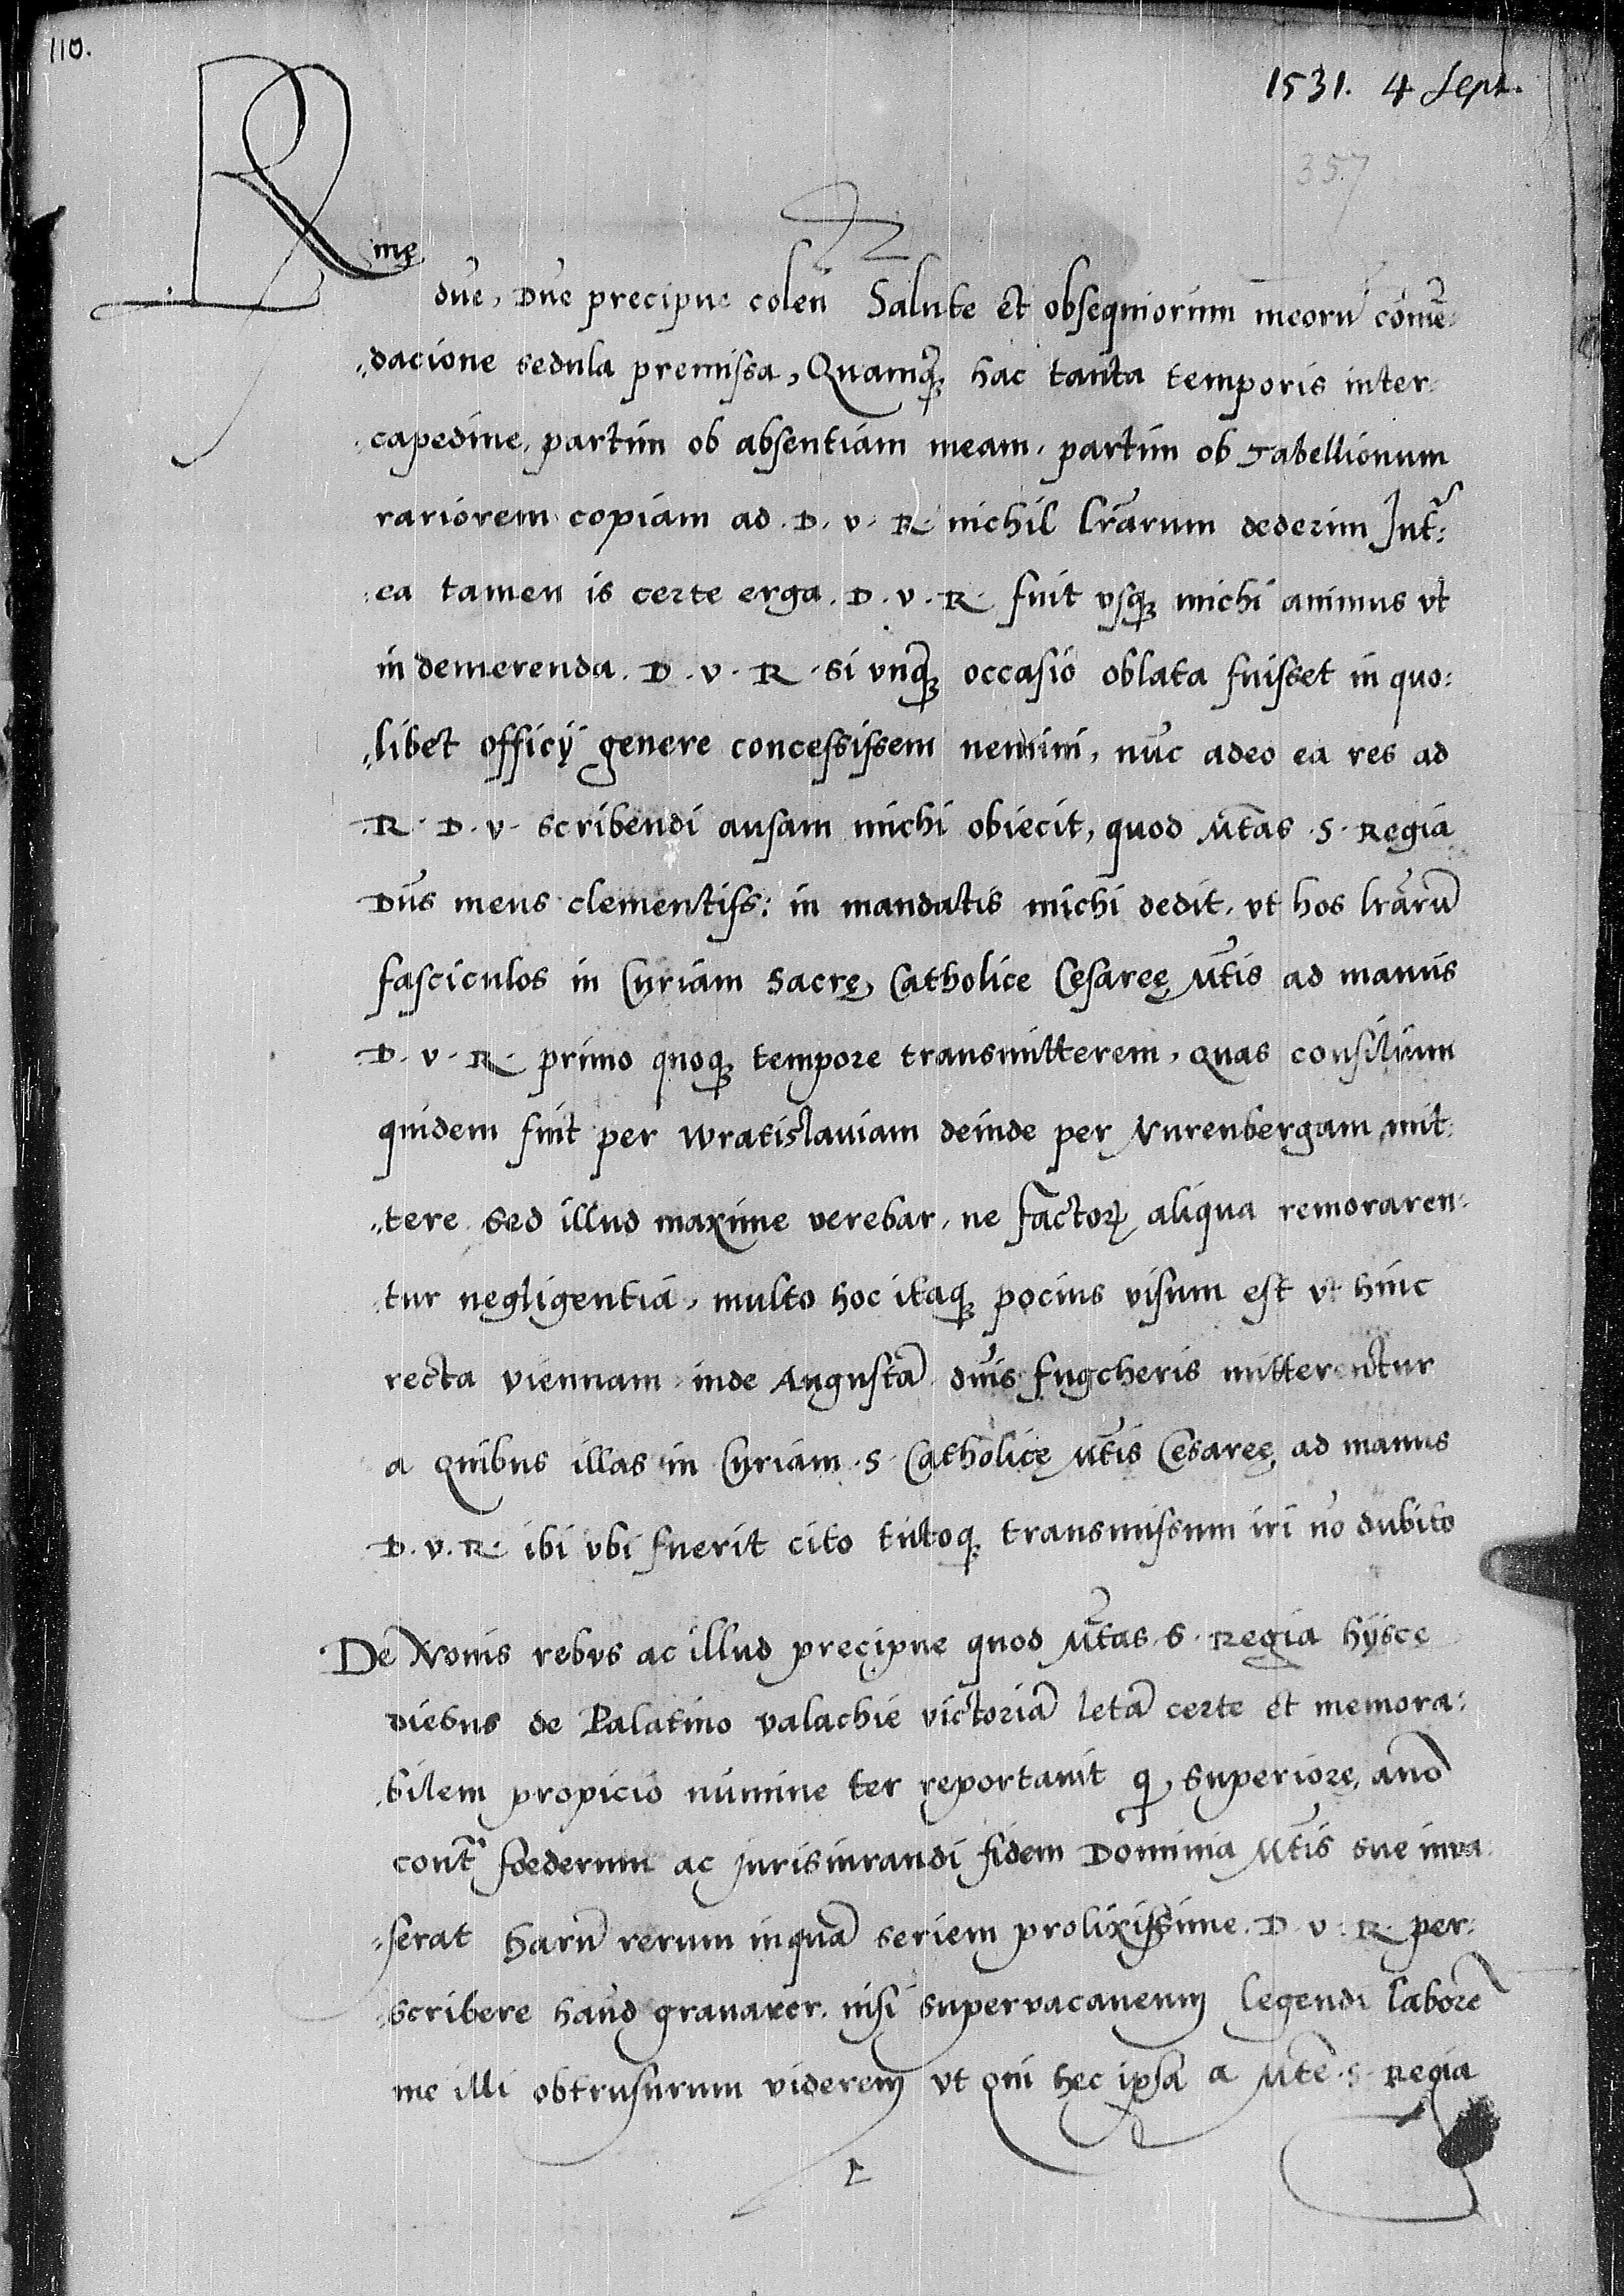 110.
1531. 4 Sept.
357
Rmę
dn̄e, Dn̄e precipue colen̄ Salute et obsequiorum meorū com̄ē=
dacione sedula premissa, Quamq̄ hac tanta temporis inter=
capedine, partim ob absentiam meam, partim ob Tabellionum
rariorem copiam ad . D . v . R nichil lr̄arum dederim Int̄=
=ea tamen is certe erga . D . v . R . fuit vsq michi animus vt
in demerenda . D . v . R . si vnq̄ occasio oblata fuisset in quo=
=libet officÿ genere concessissem nemini, nūc adeo ea res ad
R . D . v . scribendi ansam michi obiecit, quod Mt̄as . S . Regia
Dn̄s meus clementiss: in mandatis michi dedit, vt hos lr̄arū
fasciculos in Cyriam Sacrę, Catholice Cesareę Mt̄is ad manus
D . v . R . primo quoq tempore transmitterem, quas consilium
quidem fuit per Wratislauiam deinde per Nurenbergam mit=
=tere sed illud maxime verebar, ne factoꝝ aliqua remoraren=
=tur negligentia, multo hoc itaq pocius visum est vt hinc
recta viennam inde Augustā dn̄is fugcheris mitterentur
a quibus illas in Cyriam . S . Catholicę Mt̄is Cesareę, ad manus
D . v . R . ibi vbi fuerit cito tutoq transmissum iri nō dubito
De Nouis rebus ac illud precipue quod Mt̄as . S . Regia hÿsce
diebus de Palatino valachie victoriā letā certe et memora=
=bilem propicio numine ter reportauit q superiore, an̄o
cont̄ foederum ac jurisiurandi fidem Dominia Mt̄is sue inua
=serat harū rerum inquā seriem prolixissime . D . v . R . per=
=scribere haud grauarer, nisi supervacaneum legendi laborē
me illi obtrusurum viderem vt qui hęc ipsa a Mt̄e . S . Regia